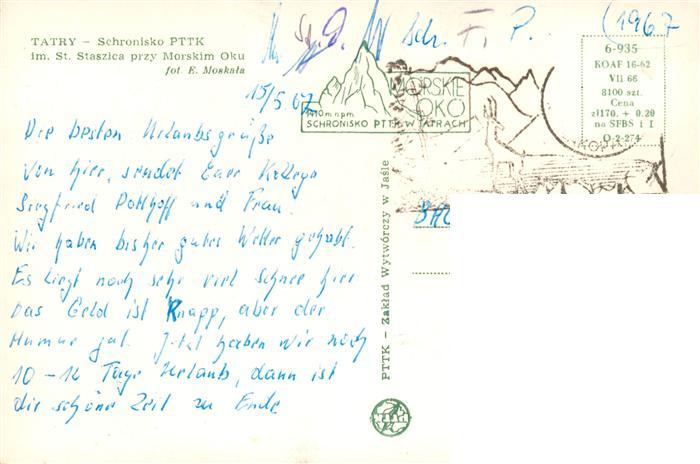 (1967
TATRY – Schronisko PTTK
im. St. Staszica przy Morskim Oku
fot. E. Moskała
15/5 67
MORSKIE
OKO
1410 m n.p.m.
SCHRONISKO PTTK W TATRACH
6-935
KOAF 16-62
VII 66
8100 szt.
Cena
zł 1,70. + 0.20
na SFBS i I
O-2-274
Die besten Urlaubsgrüße
von hier, sendet Euer Kollege
Siegfried Potthoff und Frau.
Wir haben bisher gutes Wetter gehabt.
Es liegt noch sehr viel Schnee hier
Das Geld ist Knapp, aber der
Humor gut. Jetzt haben wir noch
10 – 12 Tage Urlaub, dann ist
die schöne Zeit zu Ende
PTTK – Zakład Wytwórczy w Jaśle